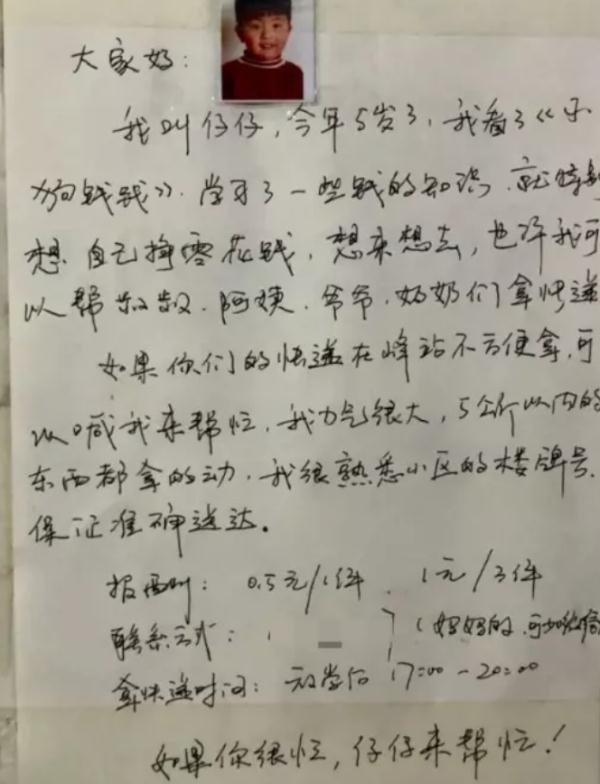 大家好：
我叫仔仔，今年5岁了，我看了《小
狗钱钱》。学习了一些钱的知识，就特别
想自己挣零花钱，想来想去，也许我可
以帮叔叔、阿姨、爷爷、奶奶们拿快递
如果你们的快递在峰站不方便拿，可
以喊我来帮忙，我力气很大，5公斤以内的
东西都拿的动，我很熟悉小区的楼牌号，
保证准确送达。
报酬：0.5元/1件、1元/3件
联系方式：（妈妈的，可加微信
拿快递时间：放学后 17:00-20:00
如果你很忙，仔仔来帮忙！